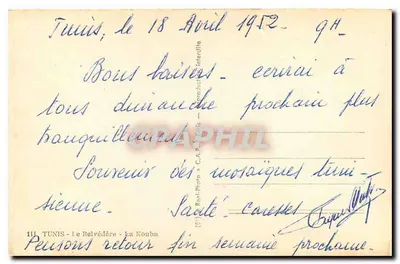 Tunis, le 18 Avril 1952 - 9H -
Bons baisers - ecrirai à
tous dimanche prochain plus
tranquillement -
Souvenir des mosaïques tuni-
sienne - Santé caresses
111 TUNIS - Le Belvédère - La Kouba
Pensons retour fin semaine prochaine -
CPAPHIL